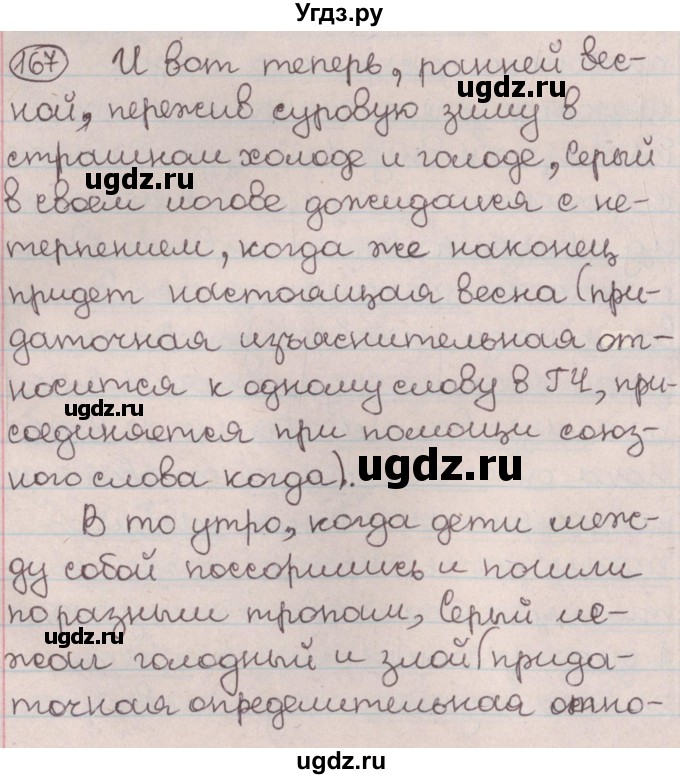 Угдз.ру
167 И вот теперь, ранней вес-
ugdz.ru
ной, пережив суровую зиму в
страшном холоде и голоде, Серый
ugdz.ru
в своем логове дожидался с не-
терпением, когда же наконец
придет настоящая весна (при-
даточная изъяснительная от-
носится к одному слову в ГЧ, при-
ugdz.ru
соединяется при помощи союз-
ugdz.ru
ного слова когда).
В то утро, когда дети меж-
ду собой поссорились и пошли
по разным тропам, Серый ле-
ugdz.ru
жал голодный и злой (прида-
точная определительная отно-
ugdz.ru